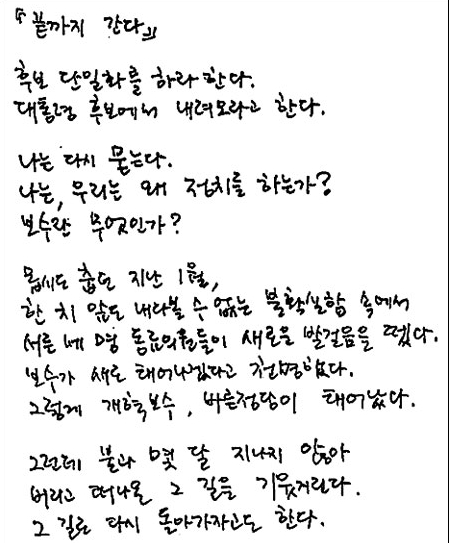 『끝까지 간다』
후보 단일화를 하라 한다.
대통령 후보에서 내려오라고 한다.
나는 다시 묻는다.
나는, 우리는 왜 정치를 하는가?
보수란 무엇인가?
몹시도 춥던 지난 1월,
한 치 앞도 내다볼 수 없는 불확실함 속에서
서른 세 명 동료의원들이 새로운 발걸음을 뗐다.
보수가 새로 태어나겠다고 천명했다.
그렇게 개혁보수, 바른정당이 태어났다.
그런데 불과 몇 달 지나지 않아
버리고 떠나온 그 길을 기웃거린다.
그 길로 다시 돌아가자고도 한다.